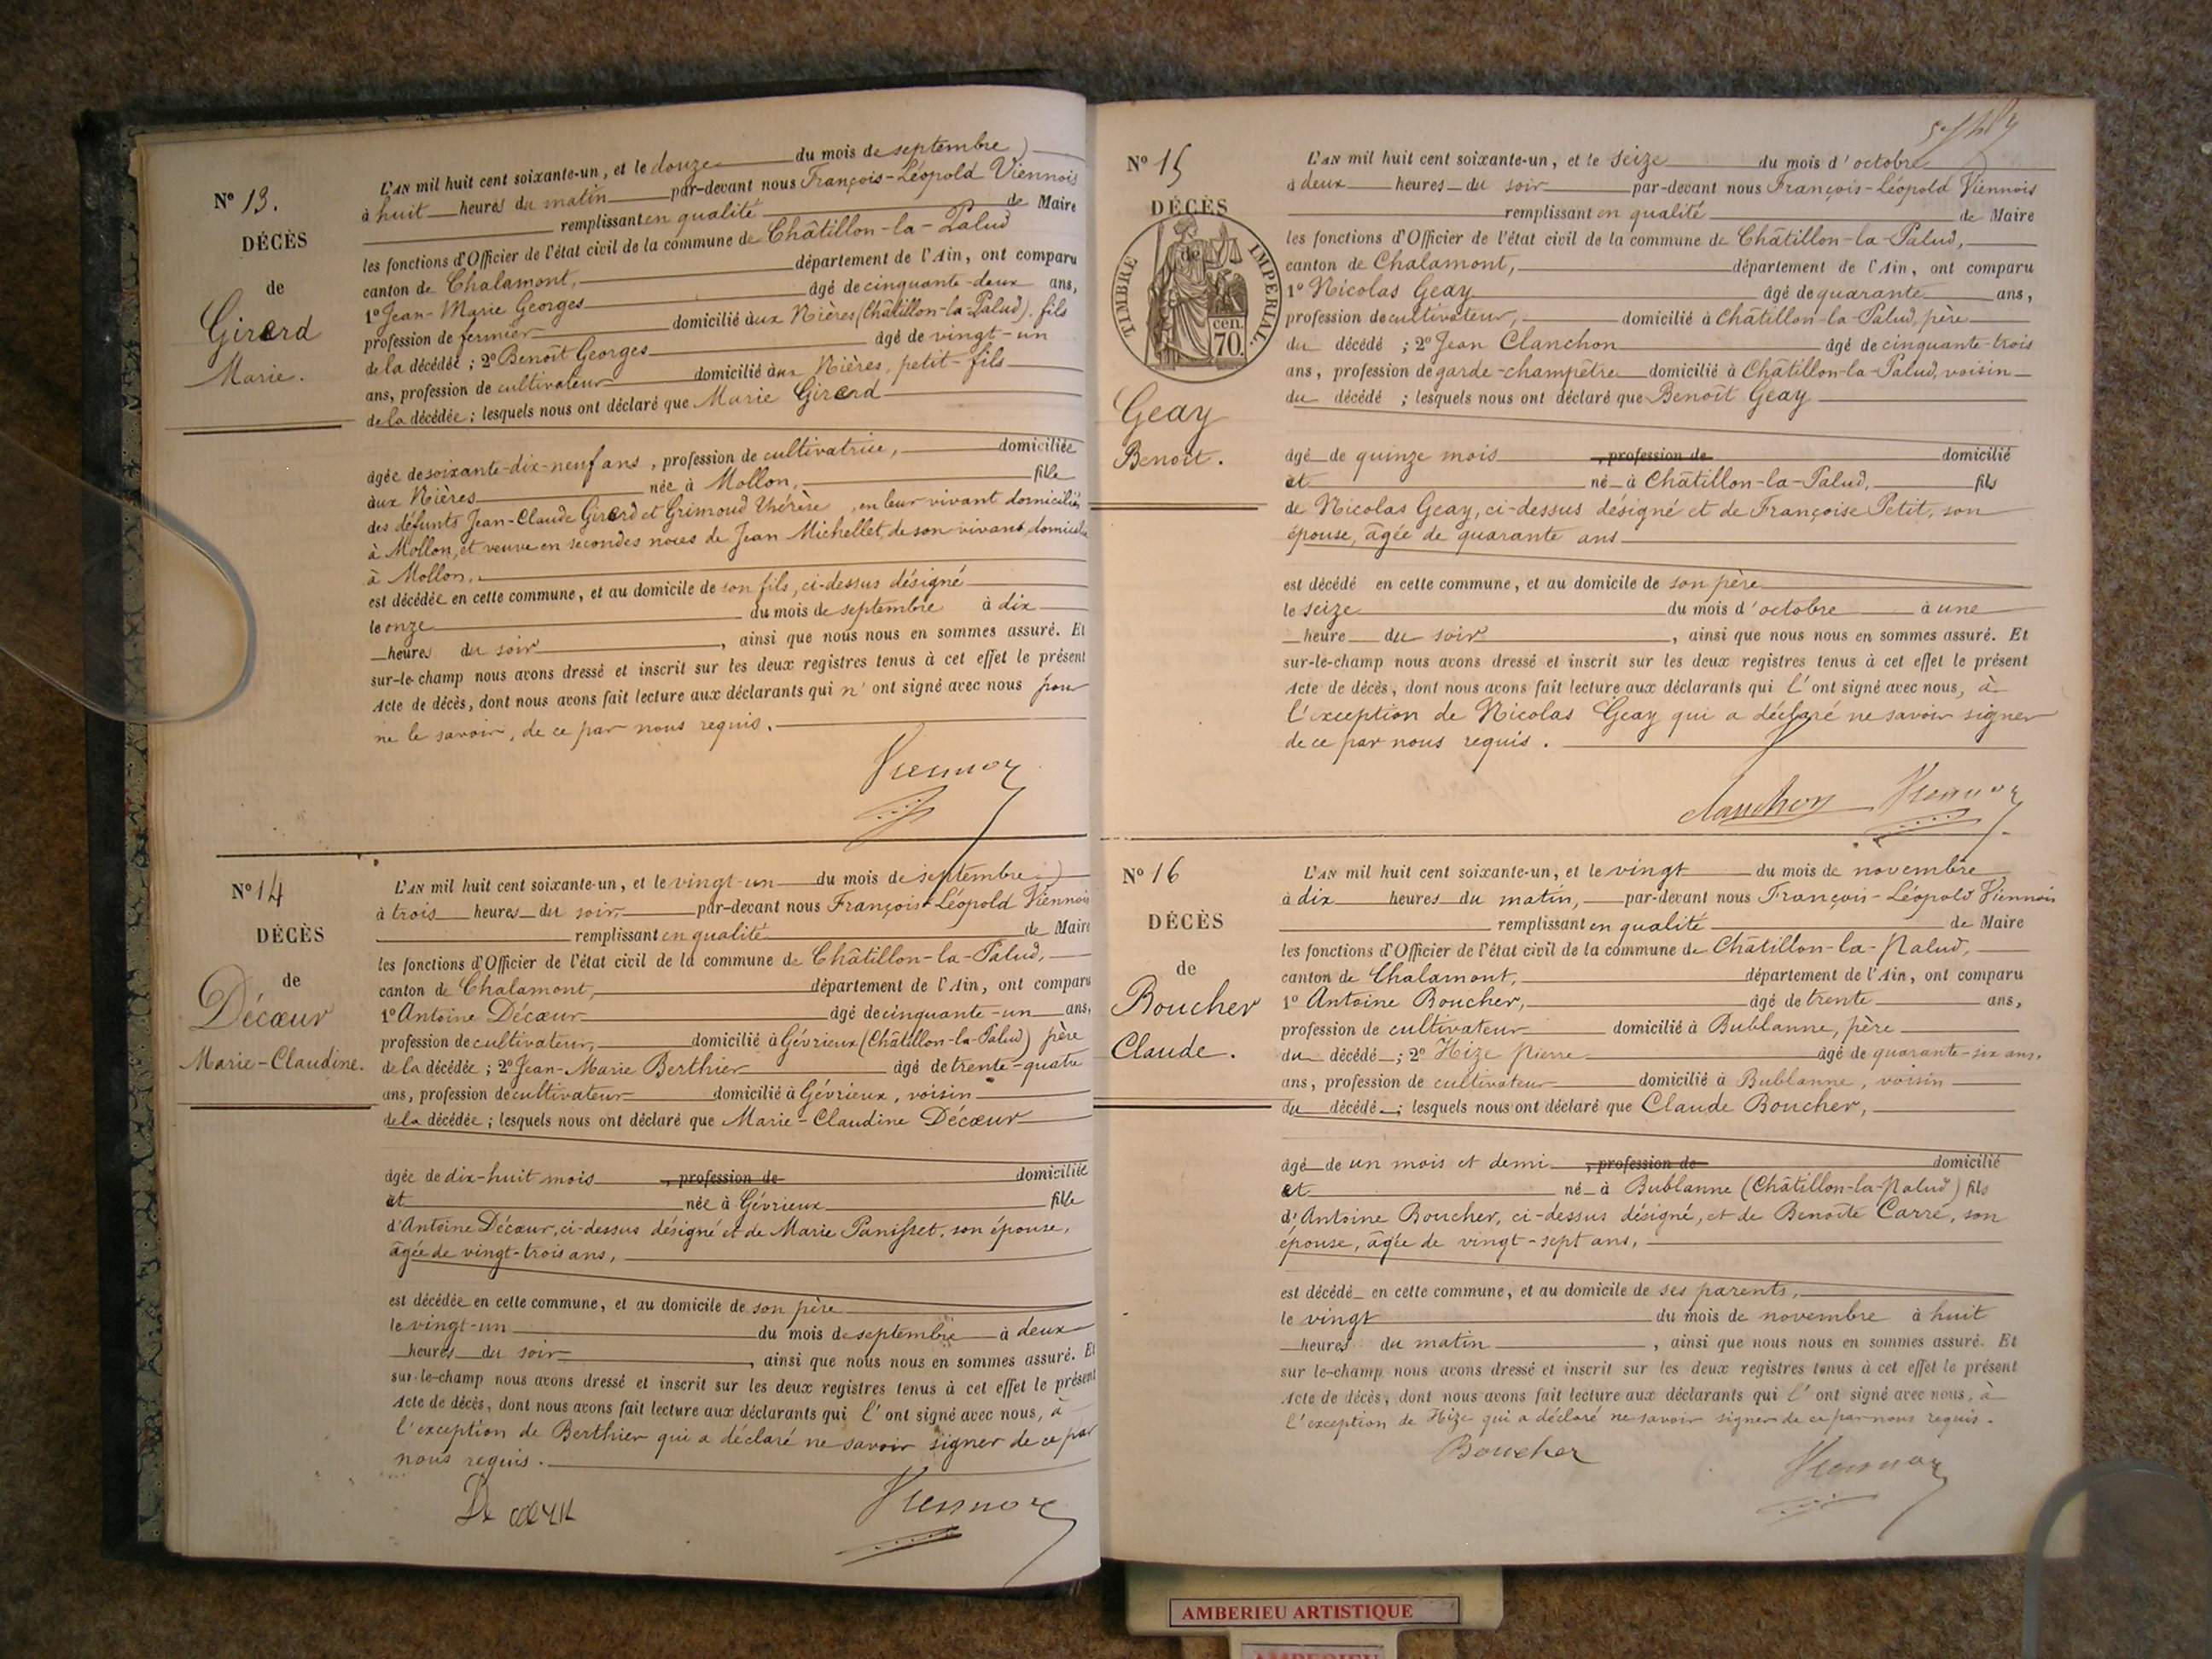 N° 13.
DÉCÈS
de
Girerd
Marie.
L'AN mil huit cent soixante-un, et le douze du mois de septembre
à huit heures du matin par-devant nous François-Léopold Viennois
remplissant en qualité de Maire
les fonctions d'Officier de l'état civil de la commune de Châtillon-la-Palud
canton de Chalamont, département de l'Ain, ont comparu
1° Jean-Marie Georges âgé de cinquante-deux ans,
profession de fermier domicilié aux Nières (Châtillon-la-Palud), fils
de la décédée ; 2° Benoît Georges âgé de vingt-un
ans, profession de cultivateur domicilié aux Nières, petit-fils
de la décédée ; lesquels nous ont déclaré que Marie Girerd
âgée de soixante-dix-neuf ans, profession de cultivatrice, domiciliée
aux Nières née à Mollon, fille
des défunts Jean-Claude Girerd et Grimoud Thérèse, en leur vivant domiciliés
à Mollon, et veuve en secondes noces de Jean Michellet, de son vivant domicilié
à Mollon.
est décédée en cette commune, et au domicile de son fils, ci-dessus désigné
le onze du mois de septembre à dix
heures du soir, ainsi que nous nous en sommes assuré. Et
sur-le-champ nous avons dressé et inscrit sur les deux registres tenus à cet effet le présent
Acte de décès, dont nous avons fait lecture aux déclarants qui n'ont signé avec nous pour
ne le savoir, de ce par nous requis.
Viennois
N° 14
DÉCÈS
de
Décœur
Marie-Claudine.
L'AN mil huit cent soixante-un, et le vingt-un du mois de septembre
à trois heures du soir par-devant nous François-Léopold Viennois
remplissant en qualité de Maire
les fonctions d'Officier de l'état civil de la commune de Châtillon-la-Palud,
canton de Chalamont, département de l'Ain, ont comparu
1° Antoine Décœur âgé de cinquante-un ans,
profession de cultivateur, domicilié à Gévrieux (Châtillon-la-Palud) père
de la décédée ; 2° Jean-Marie Berthier âgé de trente-quatre
ans, profession de cultivateur domicilié à Gévrieux, voisin
de la décédée ; lesquels nous ont déclaré que Marie-Claudine Décœur
âgée de dix-huit mois, profession de domiciliée
et née à Gévrieux fille
d'Antoine Décœur, ci-dessus désigné et de Marie Panisset, son épouse,
âgée de vingt-trois ans,
est décédée en cette commune, et au domicile de son père
le vingt-un du mois de septembre à deux
heures du soir, ainsi que nous nous en sommes assuré. Et
sur-le-champ nous avons dressé et inscrit sur les deux registres tenus à cet effet le présent
Acte de décès, dont nous avons fait lecture aux déclarants qui l'ont signé avec nous, à
l'exception de Berthier qui a déclaré ne savoir signer de ce par
nous requis.
De cœur Viennois
N° 15
DÉCÈS
de
TIMBRE IMPERIAL.
70. cen.
Geay
Benoît.
L'AN mil huit cent soixante-un, et le seize du mois d'octobre
à deux heures du soir par-devant nous François-Léopold Viennois
remplissant en qualité de Maire
les fonctions d'Officier de l'état civil de la commune de Châtillon-la-Palud,
canton de Chalamont, département de l'Ain, ont comparu
1° Nicolas Geay âgé de quarante ans,
profession de cultivateur, domicilié à Châtillon-la-Palud, père
du décédé ; 2° Jean Clanchon âgé de cinquante-trois
ans, profession de garde-champêtre domicilié à Châtillon-la-Palud, voisin
du décédé ; lesquels nous ont déclaré que Benoît Geay
âgé de quinze mois, profession de domicilié
et né à Châtillon-la-Palud, fils
de Nicolas Geay, ci-dessus désigné et de Françoise Petit, son
épouse, âgée de quarante ans
est décédé en cette commune, et au domicile de son père
le seize du mois d'octobre à une
heure du soir, ainsi que nous nous en sommes assuré. Et
sur-le-champ nous avons dressé et inscrit sur les deux registres tenus à cet effet le présent
Acte de décès, dont nous avons fait lecture aux déclarants qui l'ont signé avec nous, à
l'exception de Nicolas Geay qui a déclaré ne savoir signer
de ce par nous requis.
Clanchon Viennois
N° 16
DÉCÈS
de
Boucher
Claude.
L'AN mil huit cent soixante-un, et le vingt du mois de novembre
à dix heures du matin, par-devant nous François-Léopold Viennois
remplissant en qualité de Maire
les fonctions d'Officier de l'état civil de la commune de Châtillon-la-Palud,
canton de Chalamont, département de l'Ain, ont comparu
1° Antoine Boucher, âgé de trente ans,
profession de cultivateur domicilié à Bublanne, père
du décédé ; 2° Hize Pierre âgé de quarante-six ans.
ans, profession de cultivateur domicilié à Bublanne, voisin
du décédé ; lesquels nous ont déclaré que Claude Boucher,
âgé de un mois et demi, profession de domicilié
et né à Bublanne (Châtillon-la-Palud) fils
d'Antoine Boucher, ci-dessus désigné, et de Benoîte Carré, son
épouse, âgée de vingt-sept ans,
est décédé en cette commune, et au domicile de ses parents,
le vingt du mois de novembre à huit
heures du matin, ainsi que nous nous en sommes assuré. Et
sur le-champ nous avons dressé et inscrit sur les deux registres tenus à cet effet le présent
Acte de décès, dont nous avons fait lecture aux déclarants qui l'ont signé avec nous, à
l'exception de Hize qui a déclaré ne savoir signer de ce par nous requis.
Boucher Viennois
AMBERIEU ARTISTIQUE
AMBERIEU